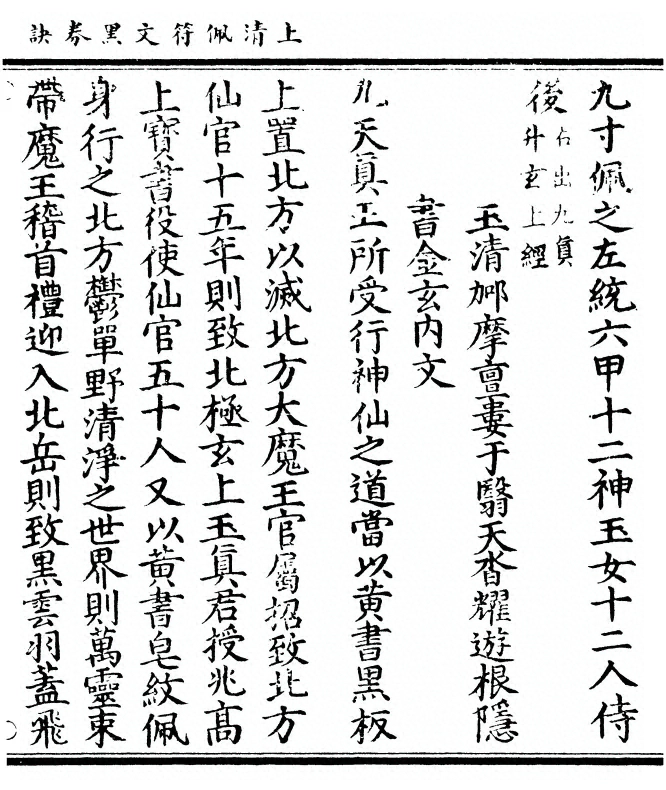 上清佩符文黑券訣
九寸佩之左統六甲十二神玉女十二人侍
後右出九真
升玄上經
玉清郍摩亶婁于翳天沓耀遊根隱
書金玄内文
九天真王所受行神仙之道當以黃書黑板
上置北方以滅北方大魔王官屬招致北方
仙官十五年則致北極玄上玉真君授兆高
上寶書役使仙官五十人又以黃書皂紋佩
身行之北方鬱單野清淨之世界則萬靈束
帶魔王稽首禮迎入北岳則致黑雲羽蓋飛